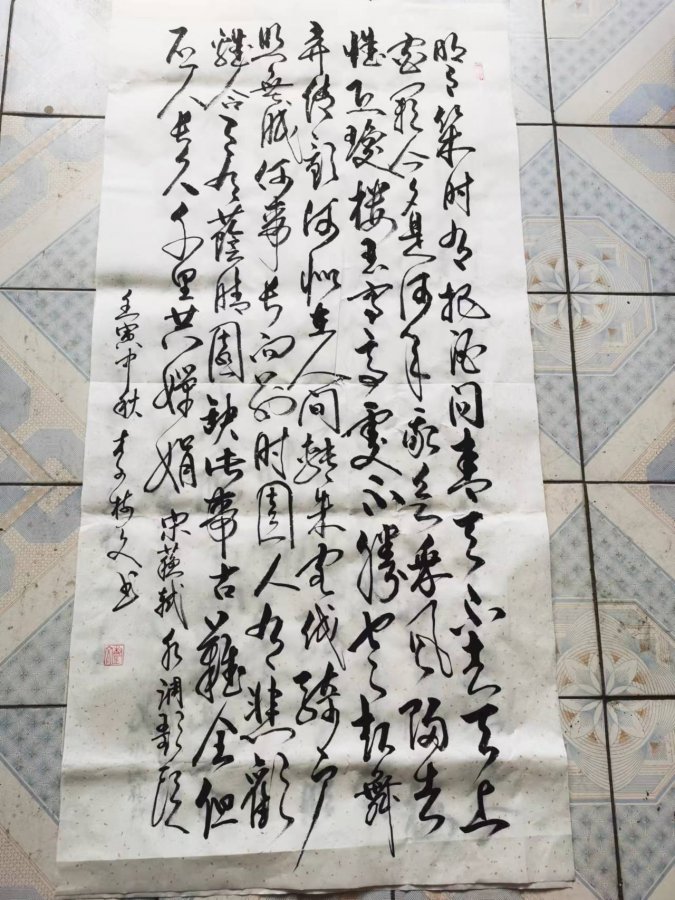 明月幾时有把酒问青天不知天上
宫阙今夕是何年我欲乘风归去
惟恐瓊楼玉宇高處不勝寒起舞
弄清影何似在人间轉朱阁低绮户
照無眠何事長向别时圆人有悲歡
離合月有蔭晴圆缺此事古難全但
願人長久千里共嬋娟 宋蘇軾水调歌頭
壬寅中秋 李树文书